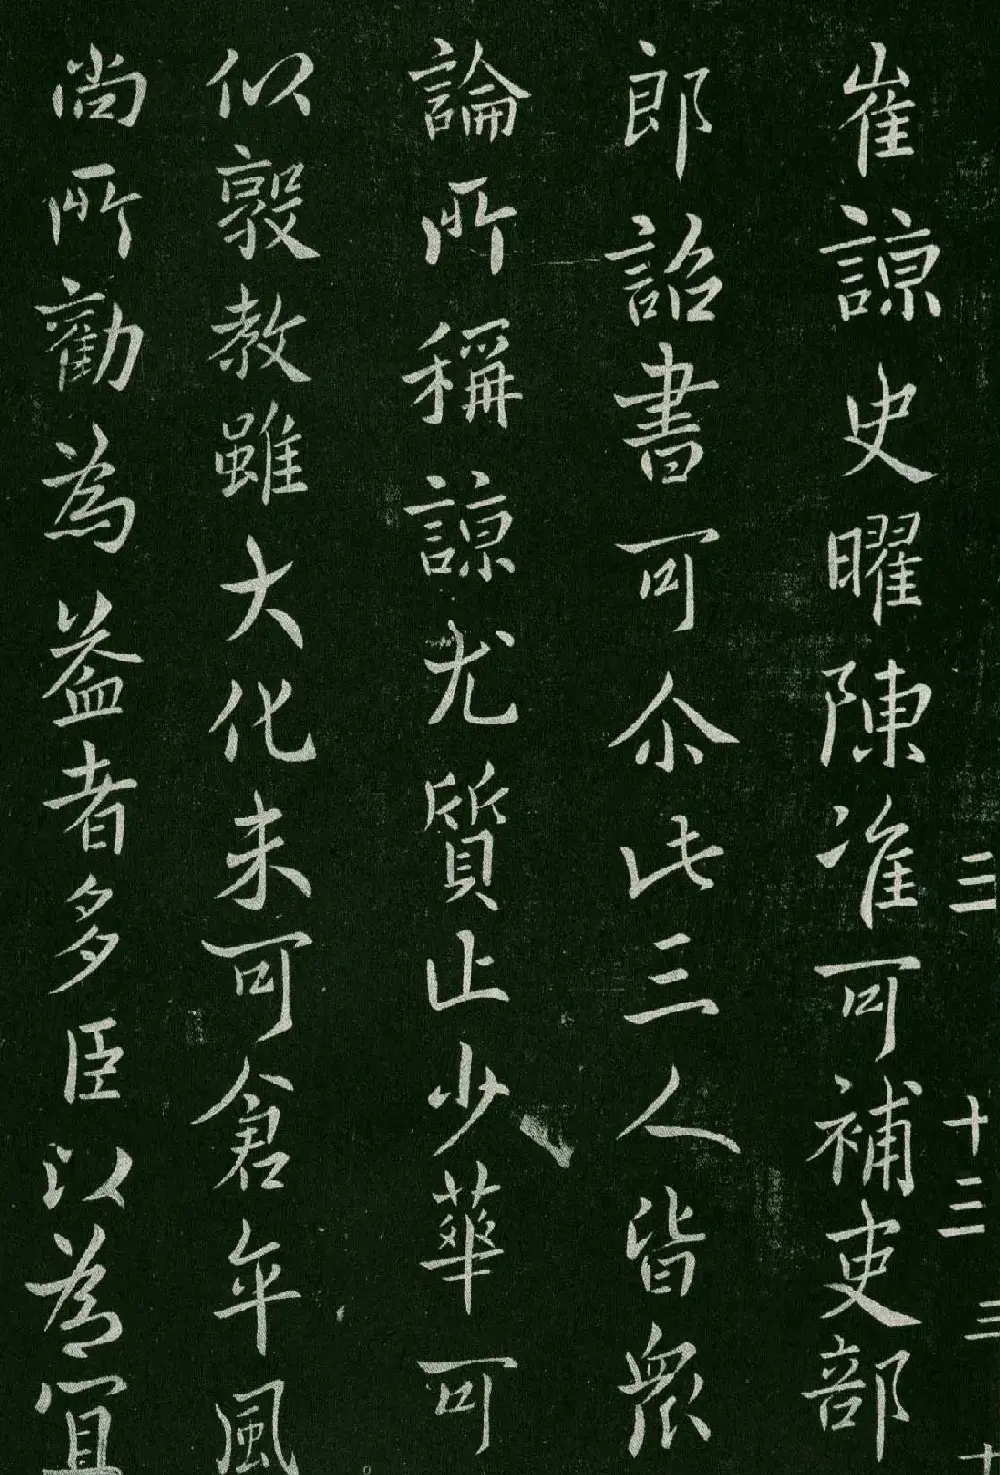 三 十三 三 十
崔諒史曜陳准可補吏部
郎詔書可尒此三人皆眾
論所稱諒尤質止少華可
以敦教雖大化未可倉卒風
尚所勸為益者多臣以為宜